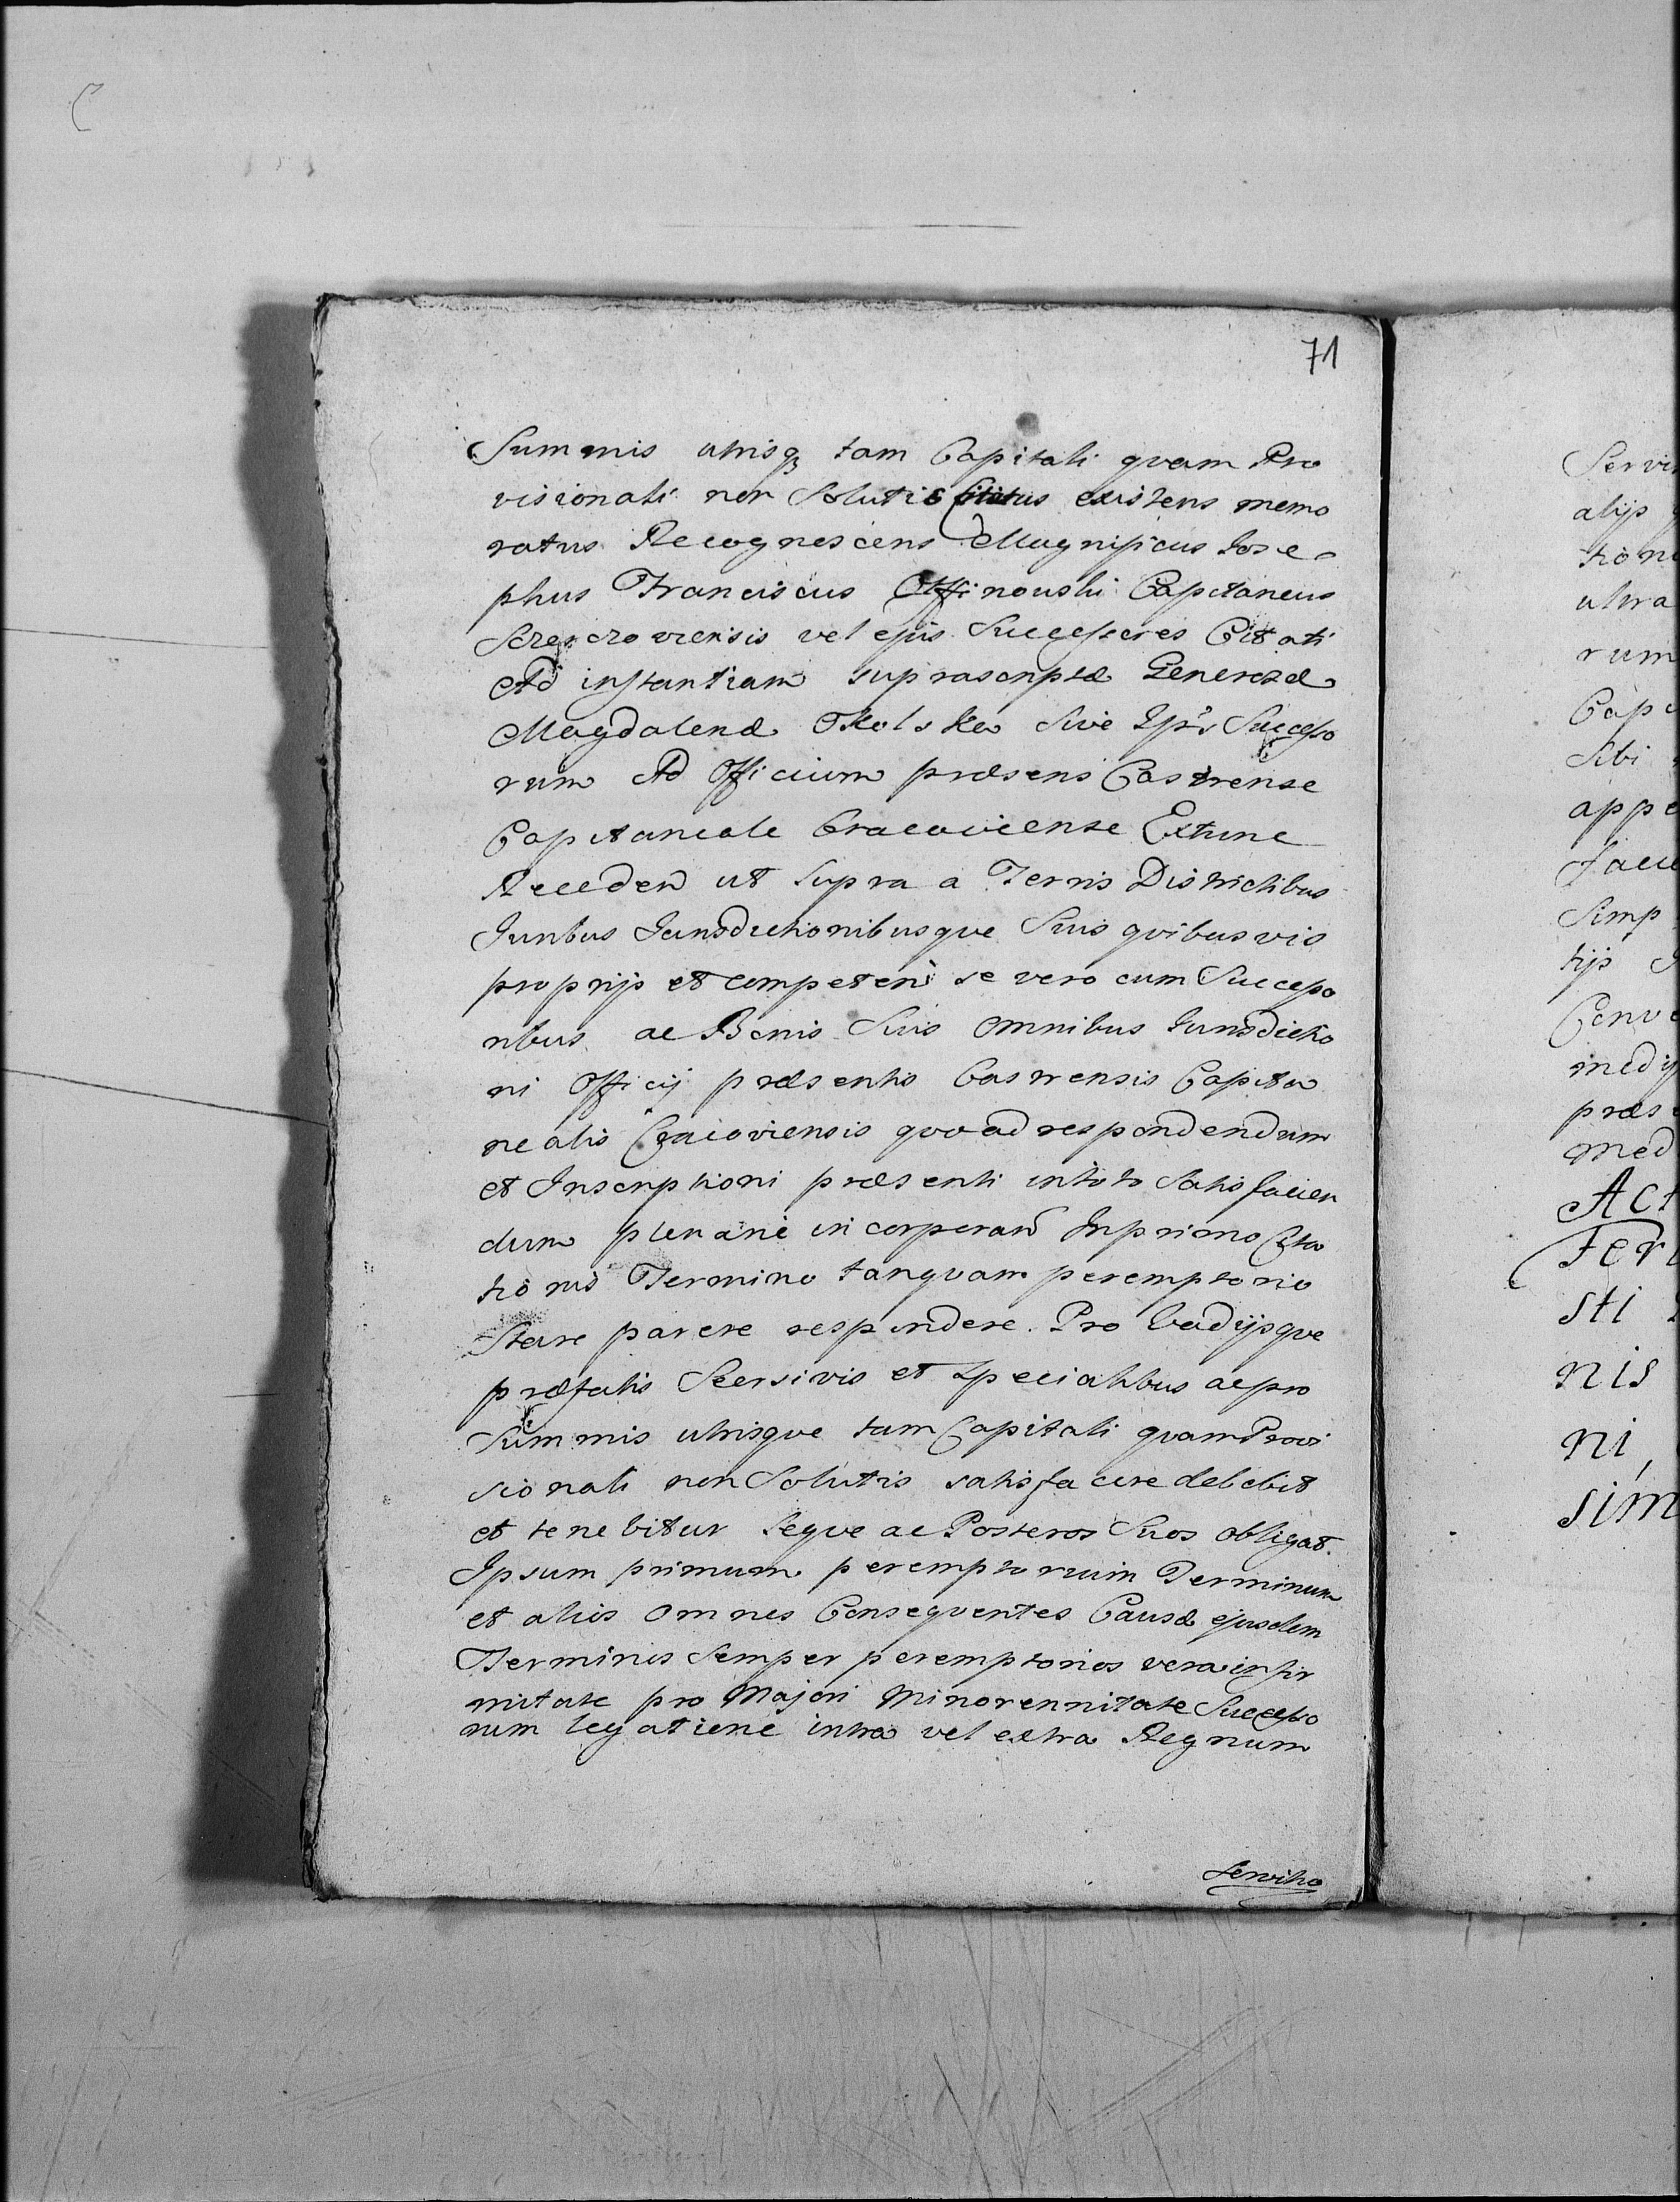 71
Summis utrisq tam Capitali quam Pro
visionali non Solutis Citatus existens memo
ratus Recognescens Magnificus Jose-
phus Franciscus Capitaneus
vel ejus Successores Citati
Ad instantiam suprascriptæ Generosæ
Magdalenæ sive Successo
rum Ad Officium præsens Castrense
Capitaneale Cracoviense Extunc
Receden ut supra a Terris Districtibus
Juribus Jurisdictionibusque Suis quibusvis
proprijs et competen se vero cum Successo
ribus ac Bonis Suis omnibus Jurisdictio
ni Officij præsentis Castrensis Capita
nealis Cracoviensis quoad respondendum
et Inscriptioni præsenti intoto Satisfacien
dum plenarie incorporan Inprimo Cita
tionis Termino tanquam peremptorio
Stare parere respondere. Pro Vadijsque
præfatis et specialibus acpro
Summis utrisque tam Capitali quam Provi
sionali non Solutis satisfacere debebit
et tenebitur Seque ac Posteros Suos obligat.
Ipsum primum peremptorium Terminum
et alios omnes Consequentes Causæ ejusdem
Terminos Semper peremptorios vera infir
mitate pro Majori Minorennitate Successo
rum legatione intra vel extra Regnum
Servitio
Servi
alijs
tion
ultra
rum
Cap
Sibi
app
Simp
tijs
Conv
medij
præs
med
Act
Fer
sti
nis
ni,
sim